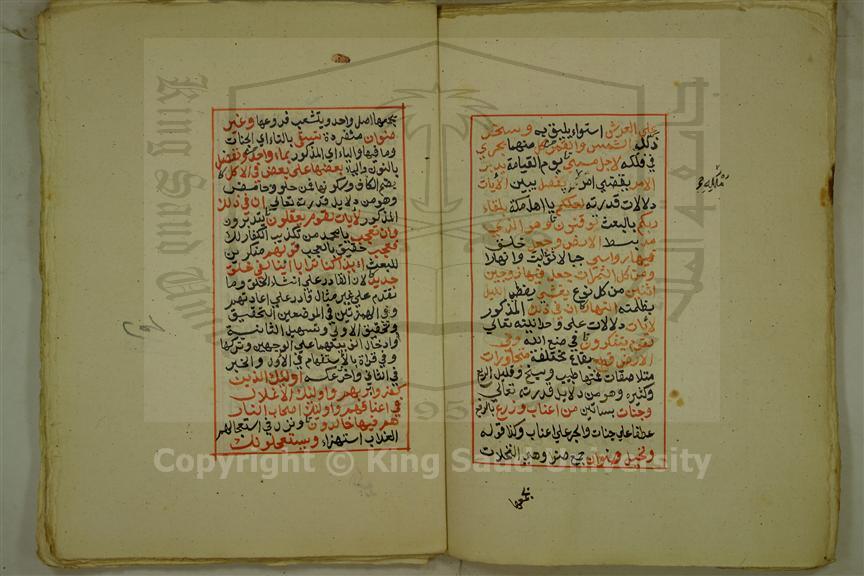 علي العرش استواء يليق به وسخر
ذلل الشمس والقمر كل منهما يجري
في فلكه لاجل مسمي يوم القيامة يدبر
الامر يقضي امر ملكه يفصل يبين الايات
دلالات قدرته لعلكم يا اهل مكة بلقاء
ربكم بالبعث توقنون وهو الذي
مد بسط الارض وجعل خلق
فيها رواسي جبالا ثوابت وانهارا
ومن كل الثمرات جعل فيها زوجين
اثنين من كل نوع يغشي يغطي الليل
بظلمته النهار ان في ذلك المذكور
لايات دلالات علي وحدانيته تعالي
لقوم يتفكرون في صنع الله وفي
الارض قطع بقاع مختلفة متجاورات
متلاصقات فمنها طيب وسبخ وقليل الريع
وكثيره وهو من دلايل قدرته تعالي
وجنات بساتين من اعناب وزرع بالرفع
عطفا علي جنات والجر علي اعناب وكذا قوله
ونخيل صنوان جمع صنو وهي النخلات
يجمعها
يجمعها اصل واحد ويتشعب فروعها وغير
صنوان منفردة تسقي بالتاء اي الجنات
وما فيها والياء اي المذكور بماء واحد ونفضل
بالنون والياء بعضها علي بعض في الاكل
بضم الكاف وسكونها فمن حلو وحامض
وهو من دلايل قدرته تعالي ان في ذلك
المذكور لايات لقوم يعقلون يتدبرون
وان تعجب يا محمد من تكذيب الكفار لك
فعجب حقيق بالعجب قولهم منكرين
للبعث ائذا كنا ترابا ائنا لفي خلق
جديد لان القادر علي انشاء الخلق وما
تقدم علي غير مثال قادر علي اعادتهم
وفي الهمزتين في الموضعين التحقيق
وتحقيق الاولي وتسهيل الثانية
وادخال الف بينهما علي الوجهين وتركها
وفي قراة بالاستفهام في الاول والخبر
في الثاني واخري عكسه اوليك الذين
كفروا بربهم واوليك الاغلال
في اعناقهم واوليك اصحاب النار
هم فيها خالدون ونزل في استعجالهم
العذاب استهزاء ويستعجلونك
Copyright © King Saud University